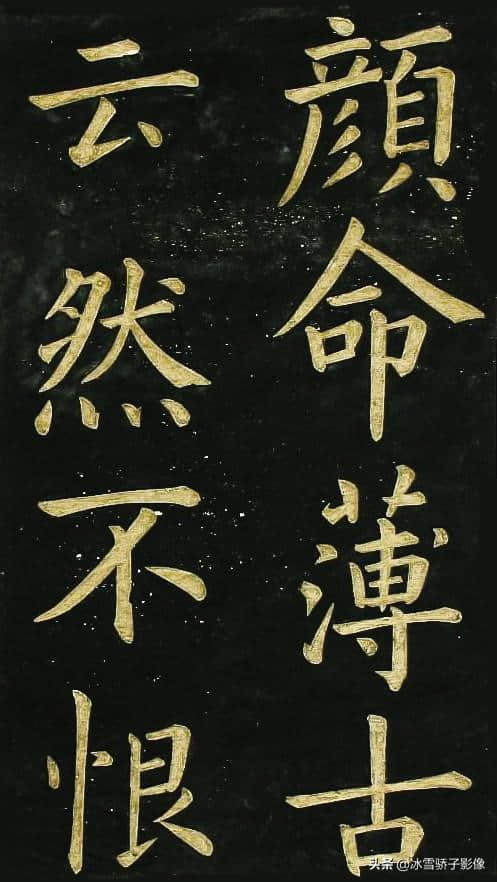 顔命薄古
云然不恨
头条@冰雪骄子影像